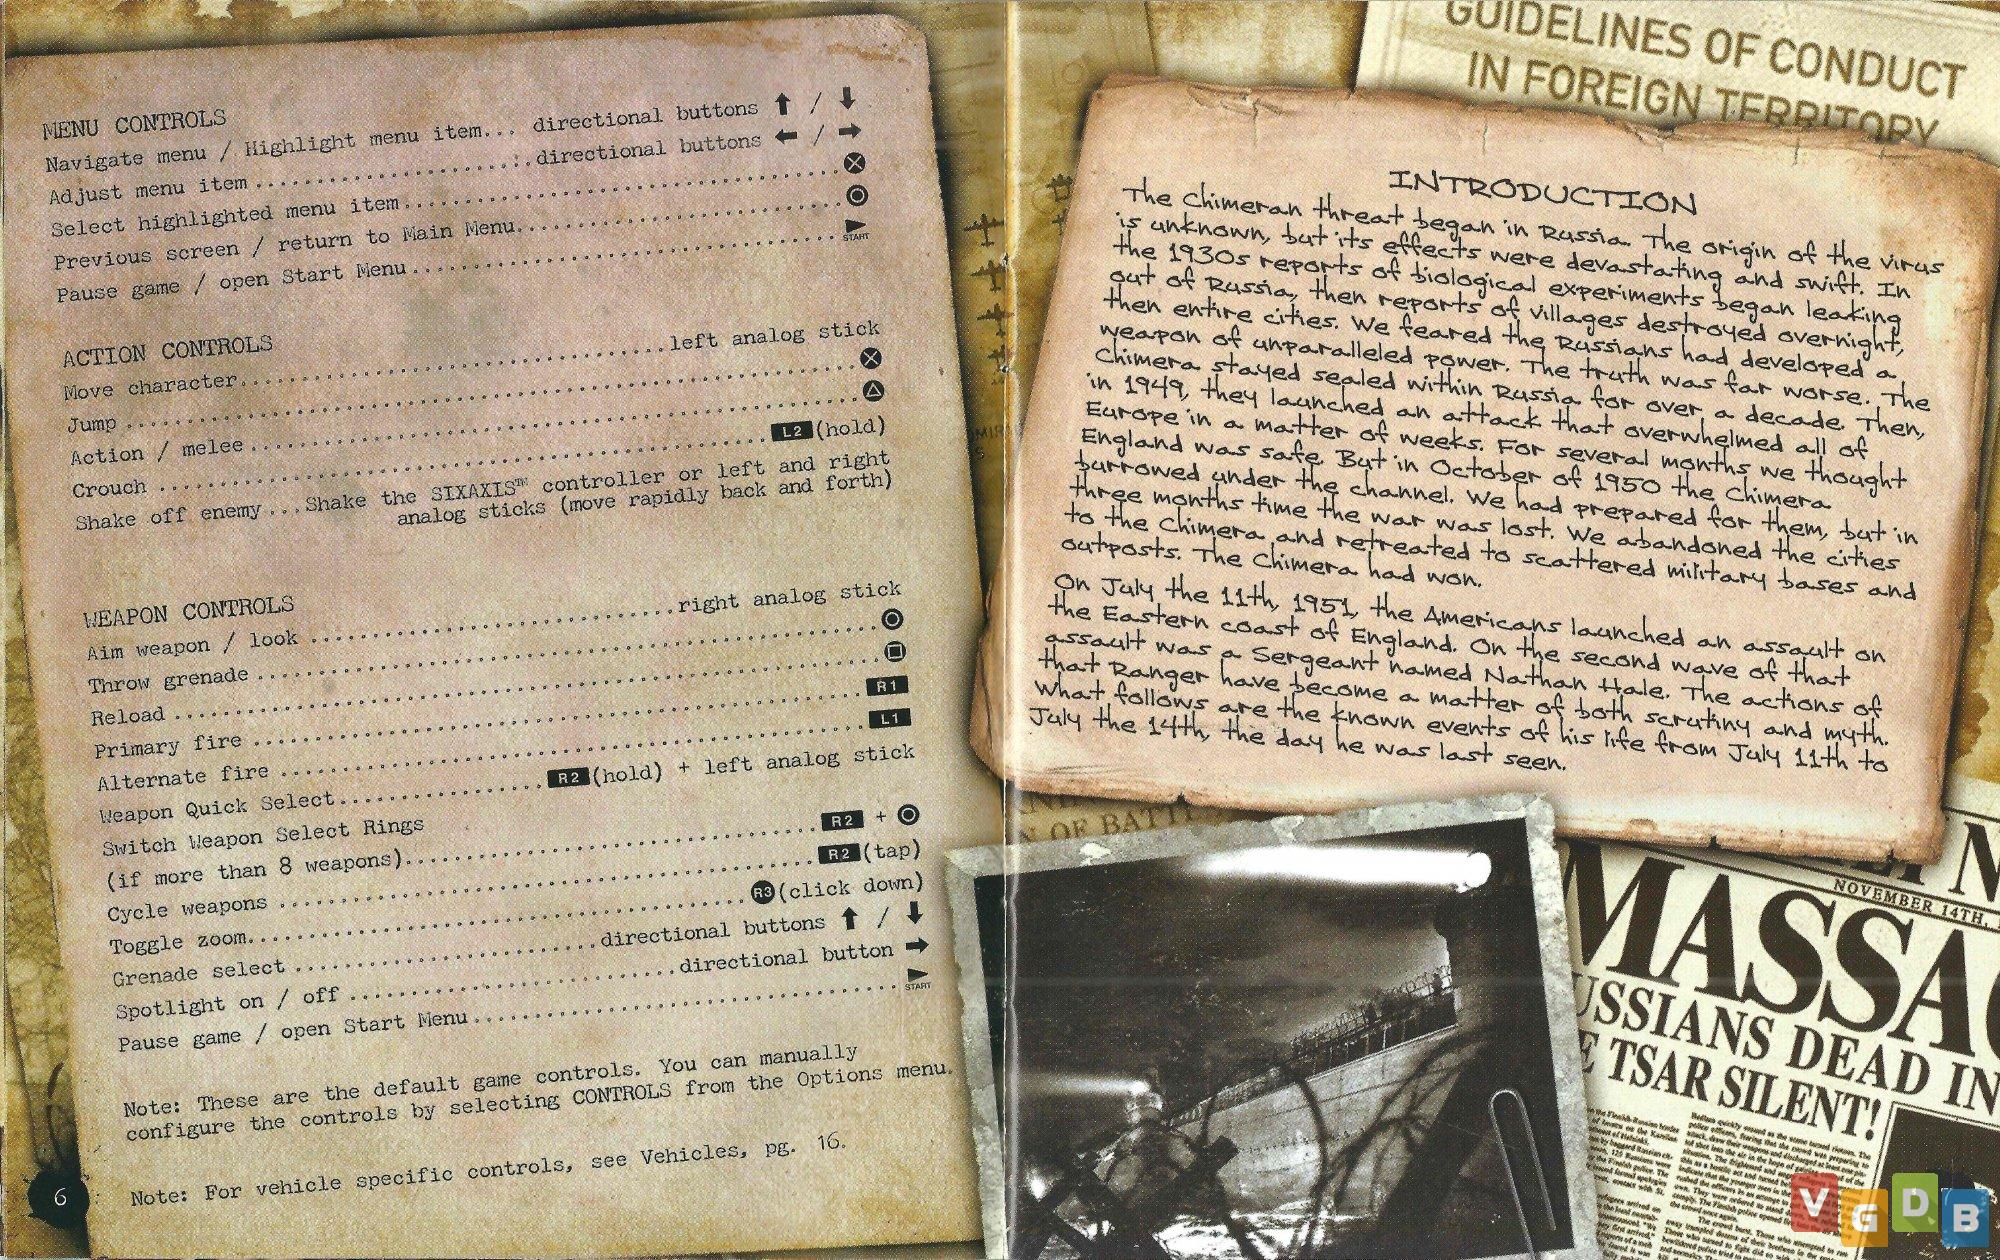 MENU CONTROLS
Navigate menu / Highlight menu item... directional buttons ↑ / ↓
Adjust menu item ........ directional buttons ← / →
Select highlighted menu item........ ⊗
Previous screen / return to Main Menu........ ◯
Pause game / open Start Menu........ START
ACTION CONTROLS
Move character........left analog stick
Jump ........ ⊗
Action / melee ........ △
Crouch ........ L2 (hold)
Shake off enemy ...Shake the SIXAXIS™ controller or left and right
analog sticks (move rapidly back and forth)
WEAPON CONTROLS
Aim weapon / look ........right analog stick
Throw grenade ........ ◯
Reload ........ □
Primary fire ........ R1
Alternate fire ........ L1
Weapon Quick Select........ R2 (hold) + left analog stick
Switch Weapon Select Rings
(if more than 8 weapons)........ R2 + ◯
Cycle weapons ........ R2 (tap)
Toggle zoom........ R3 (click down)
Grenade select ........directional buttons ↑ / ↓
Spotlight on / off ........directional button →
Pause game / open Start Menu........ START
Note: These are the default game controls. You can manually
configure the controls by selecting CONTROLS from the Options menu.
Note: For vehicle specific controls, see Vehicles, pg. 16.
6
GUIDELINES OF CONDUCT
IN FOREIGN TERRITORY
INTRODUCTION
The Chimeran threat began in Russia. The origin of the virus
is unknown, but its effects were devastating and swift. In
the 1930s reports of biological experiments began leaking
out of Russia, then reports of villages destroyed overnight,
then entire cities. We feared the Russians had developed a
weapon of unparalleled power. The truth was far worse. The
Chimera stayed sealed within Russia for over a decade. Then,
in 1949, they launched an attack that overwhelmed all of
Europe in a matter of weeks. For several months we thought
England was safe. But in October of 1950 the Chimera
burrowed under the channel. We had prepared for them, but in
three months time the war was lost. We abandoned the cities
to the Chimera and retreated to scattered military bases and
outposts. The Chimera had won.
On July the 11th, 1951, the Americans launched an assault on
the Eastern coast of England. On the second wave of that
assault was a Sergeant named Nathan Hale. The actions of
that Ranger have become a matter of both scrutiny and myth.
What follows are the known events of his life from July 11th to
July the 14th, the day he was last seen.
OF BATT
NOVEMBER 14TH,
MASSAC
USSIANS DEAD IN
E TSAR SILENT!
VGDB